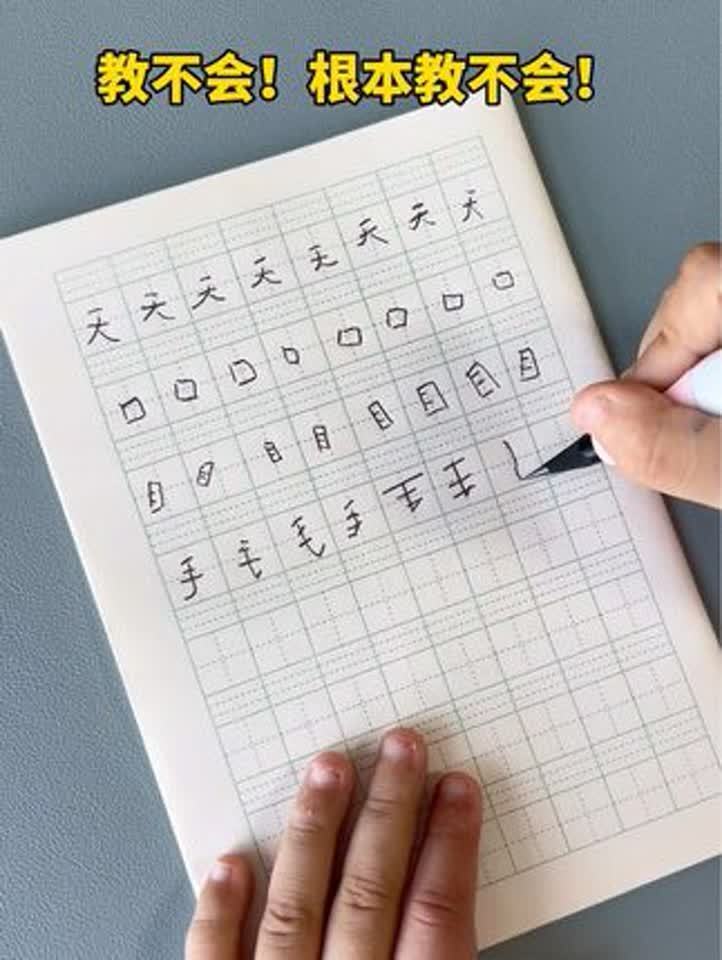 教不会！根本教不会！
天天天天天天天天
口口口口口口口口
目目目目目目目目
手毛毛手